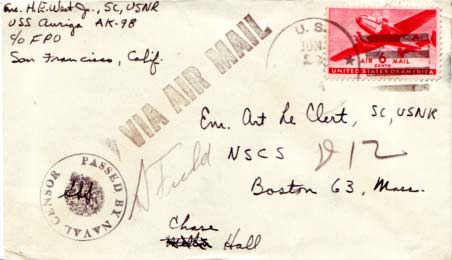 Ens. H.E. West Jr., SC, USNR
USS Auriga AK-98
c/o FPO
San Francisco, Calif.
VIA AIR MAIL
U. S.
JUN
AIR 6 MAIL
CENTS
UNITED STATES OF AMERICA
Ens. Art Le Clert, SC, USNR
NSCS D12
Boston 63, Mass.
Field
Chase
Hall
PASSED BY NAVAL CENSOR